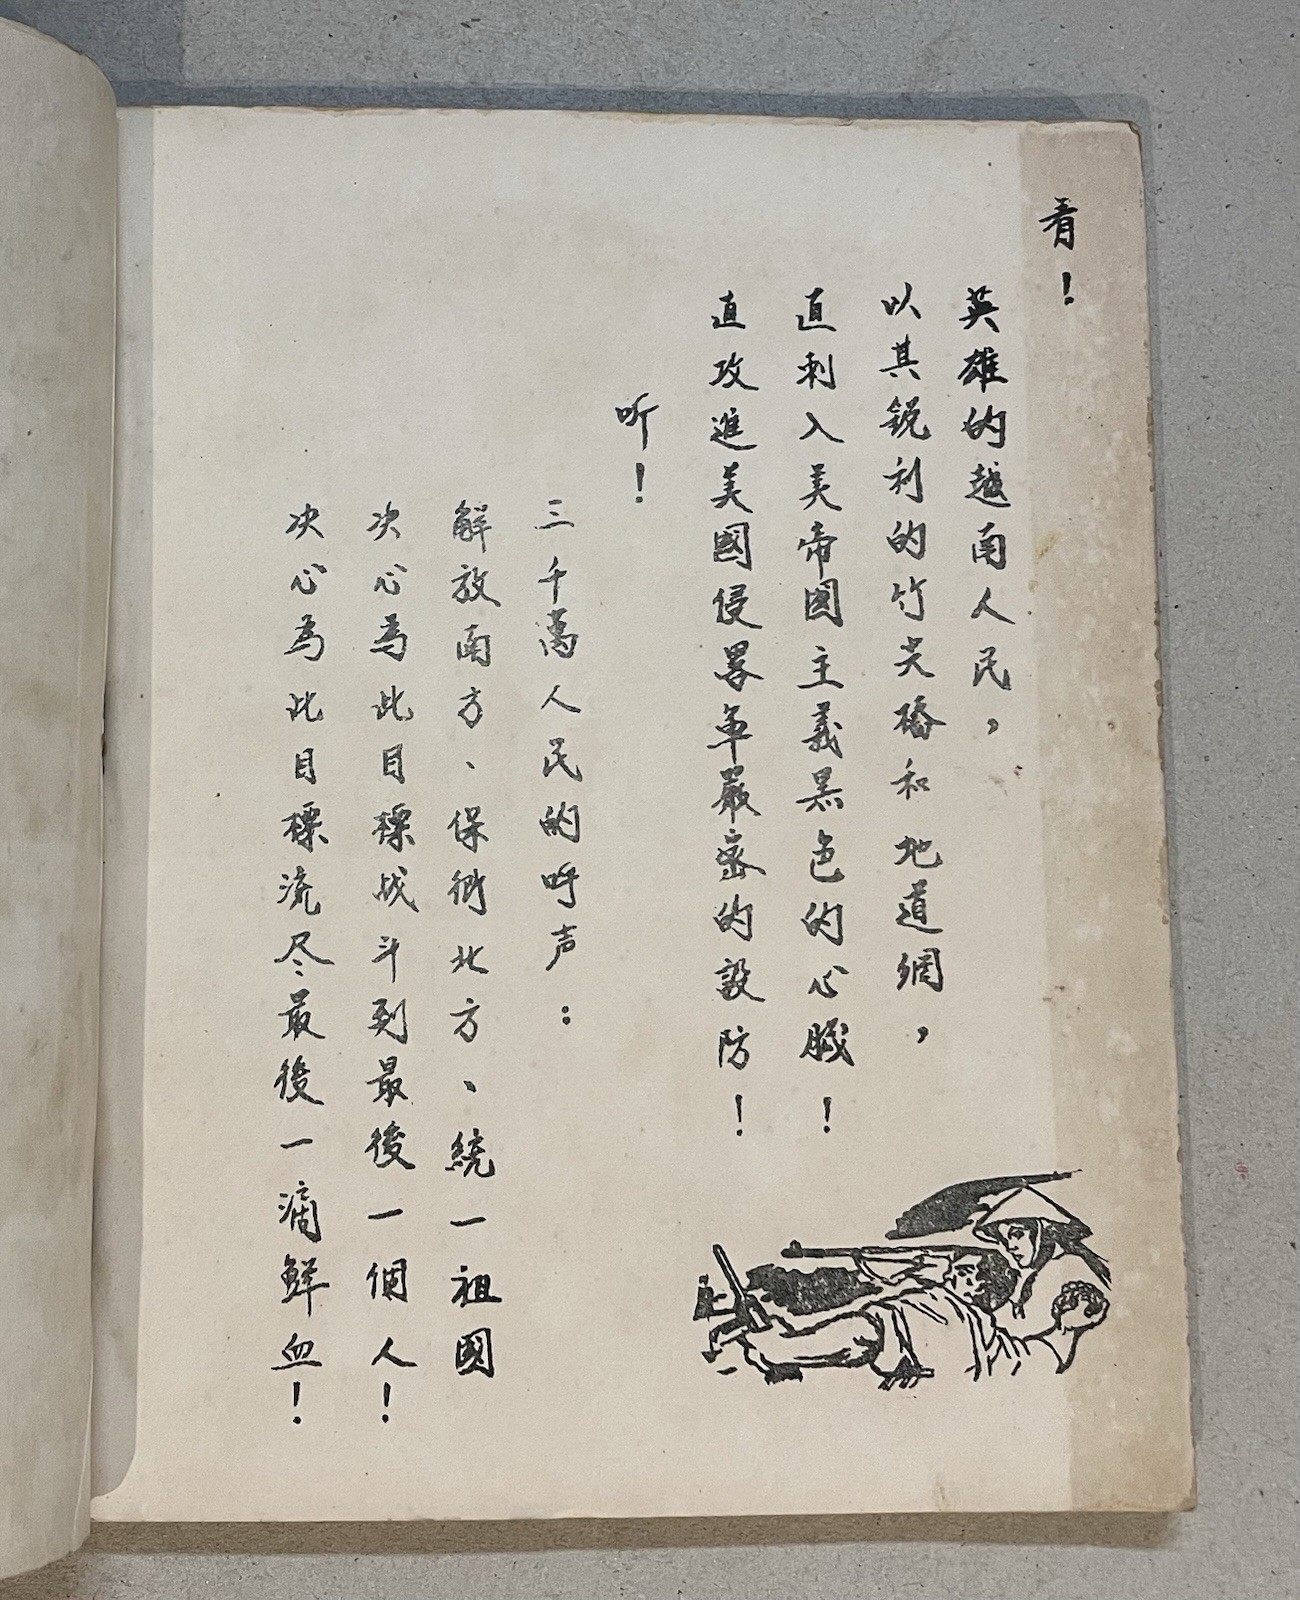 看！
英雄的越南人民，
以其銳利的竹尖樁和地道網，
直刺入美帝國主義黑色的心臟！
直攻進美國侵畧軍嚴密的設防！
听！
三千萬人民的呼声：
解放南方、保衛北方、統一祖國
决心為此目標战斗到最後一個人！
决心為此目標流尽最後一滴鮮血！